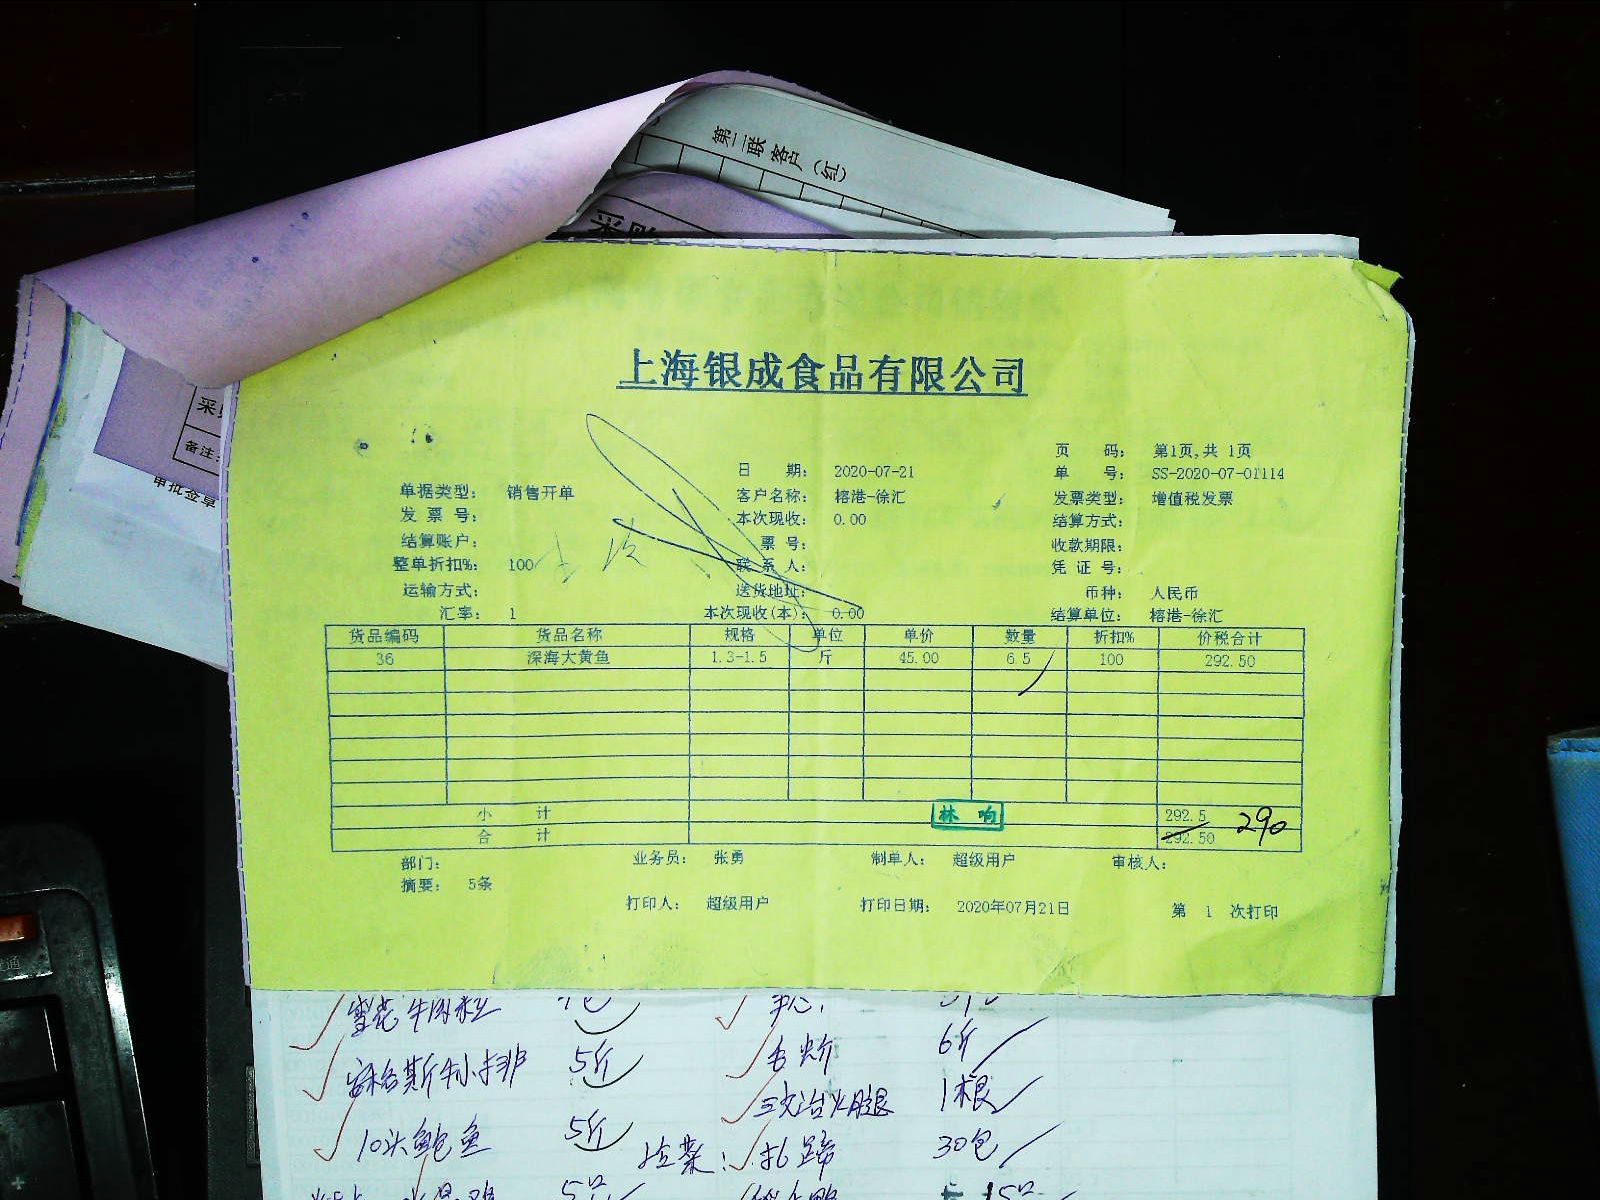 第二联客户(红)
采购
采购
备注:
审批签章
上海银成食品有限公司
页 码: 第1页,共 1页
日 期: 2020-07-21 单 号: SS-2020-07-01114
单据类型: 销售开单 客户名称: 榕港-徐汇 发票类型: 增值税发票
发 票 号: 本次现收: 0.00 结算方式:
结算账户: 票 号: 收款期限:
整单折扣%: 100 联 系 人: 凭 证 号:
运输方式: 送货地址: 币种: 人民币
汇率: 1 本次现收(本): 0.00 结算单位: 榕港-徐汇
货品编码 货品名称 规格 单位 单价 数量 折扣% 价税合计
36 深海大黄鱼 1.3-1.5 斤 45.00 6.5 100 292.50
小 计 292.5
林 响 290
合 计 292.50
部门: 业务员: 张勇 制单人: 超级用户 审核人:
摘要: 5条
打印人: 超级用户 打印日期: 2020年07月21日 第 1 次打印
雪花牛肉粒
安格斯牛小排 5斤 6斤
三文治火腿 1根
10头鲍鱼 5斤 扎蹄 30包